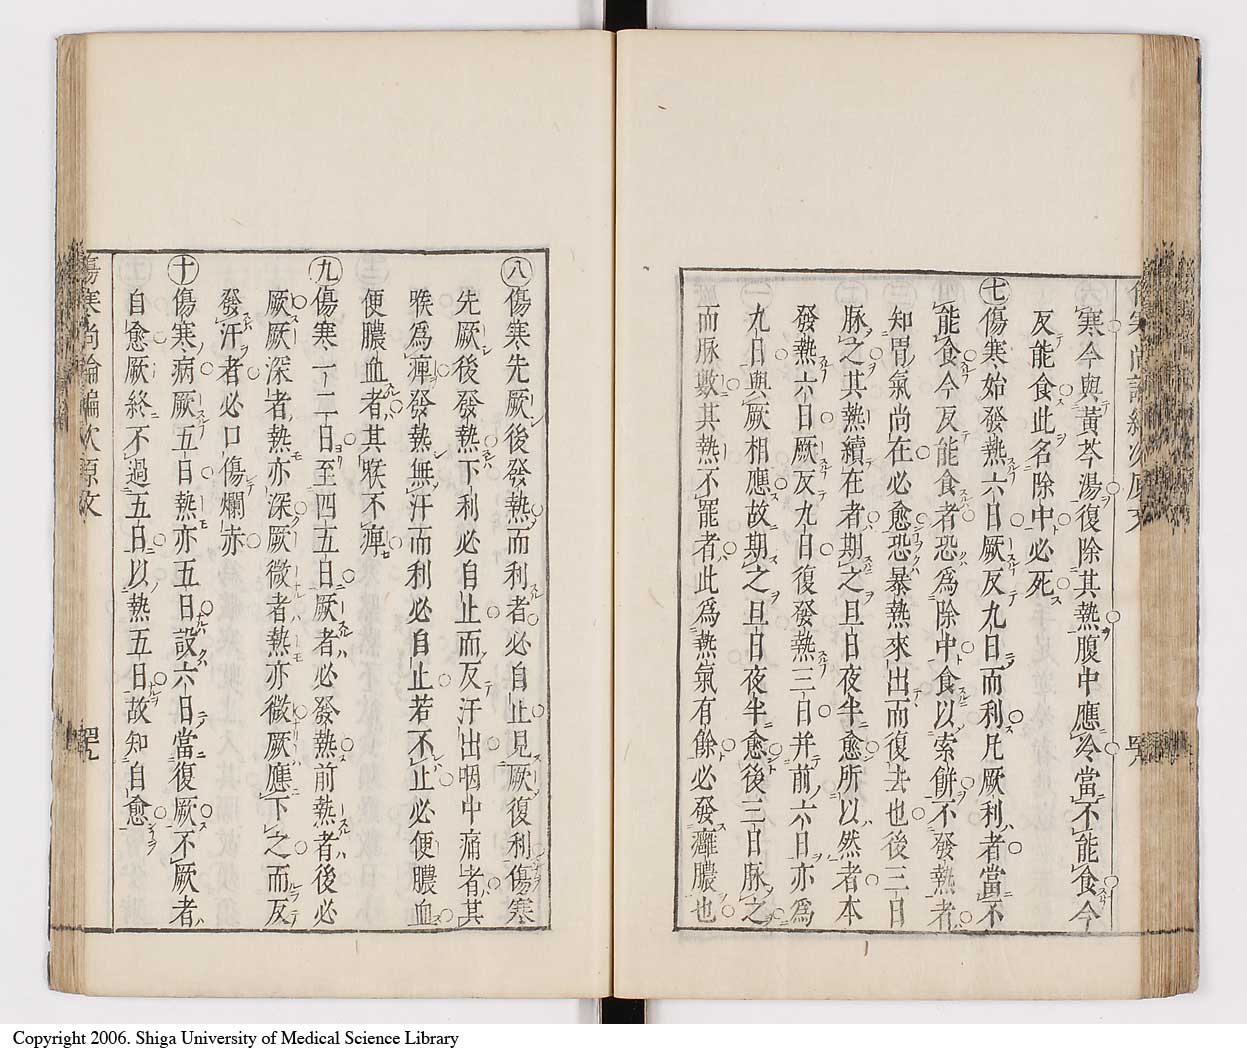 寒今與黃芩湯復除其熱腹中應冷當不能食今
反能食此名除中必死
㊆傷寒始發熱六日厥反九日而利凡厥利者當不
能食今反能食者恐爲除中食以索餅不發熱者
知胃氣尚在必愈恐暴熱來出而復去也後三日
脉之其熱續在者期之旦日夜半愈所以然者本
發熱六日厥反九日復發熱三日并前六日亦爲
九日與厥相應故期之旦日夜半愈後三日脉之
而脉數其熱不罷者此爲熱氣有餘必發癰膿也
㊇傷寒先厥後發熱而利者必自止見厥復利傷寒
先厥後發熱下利必自止而反汗出咽中痛者其
喉爲痺發熱無汗而利必自止若不止必便膿血
便膿血者其喉不痺
㊈傷寒一二日至四五日厥者必發熱前熱者後必
厥厥深者熱亦深厥微者熱亦微厥應下之而反
發汗者必口傷爛赤
㊉傷寒病厥五日熱亦五日設六日當復厥不厥者
自愈厥終不過五日以熱五日故知自愈
傷寒尚論編次原文
Copyright 2006. Shiga University of Medical Science Library